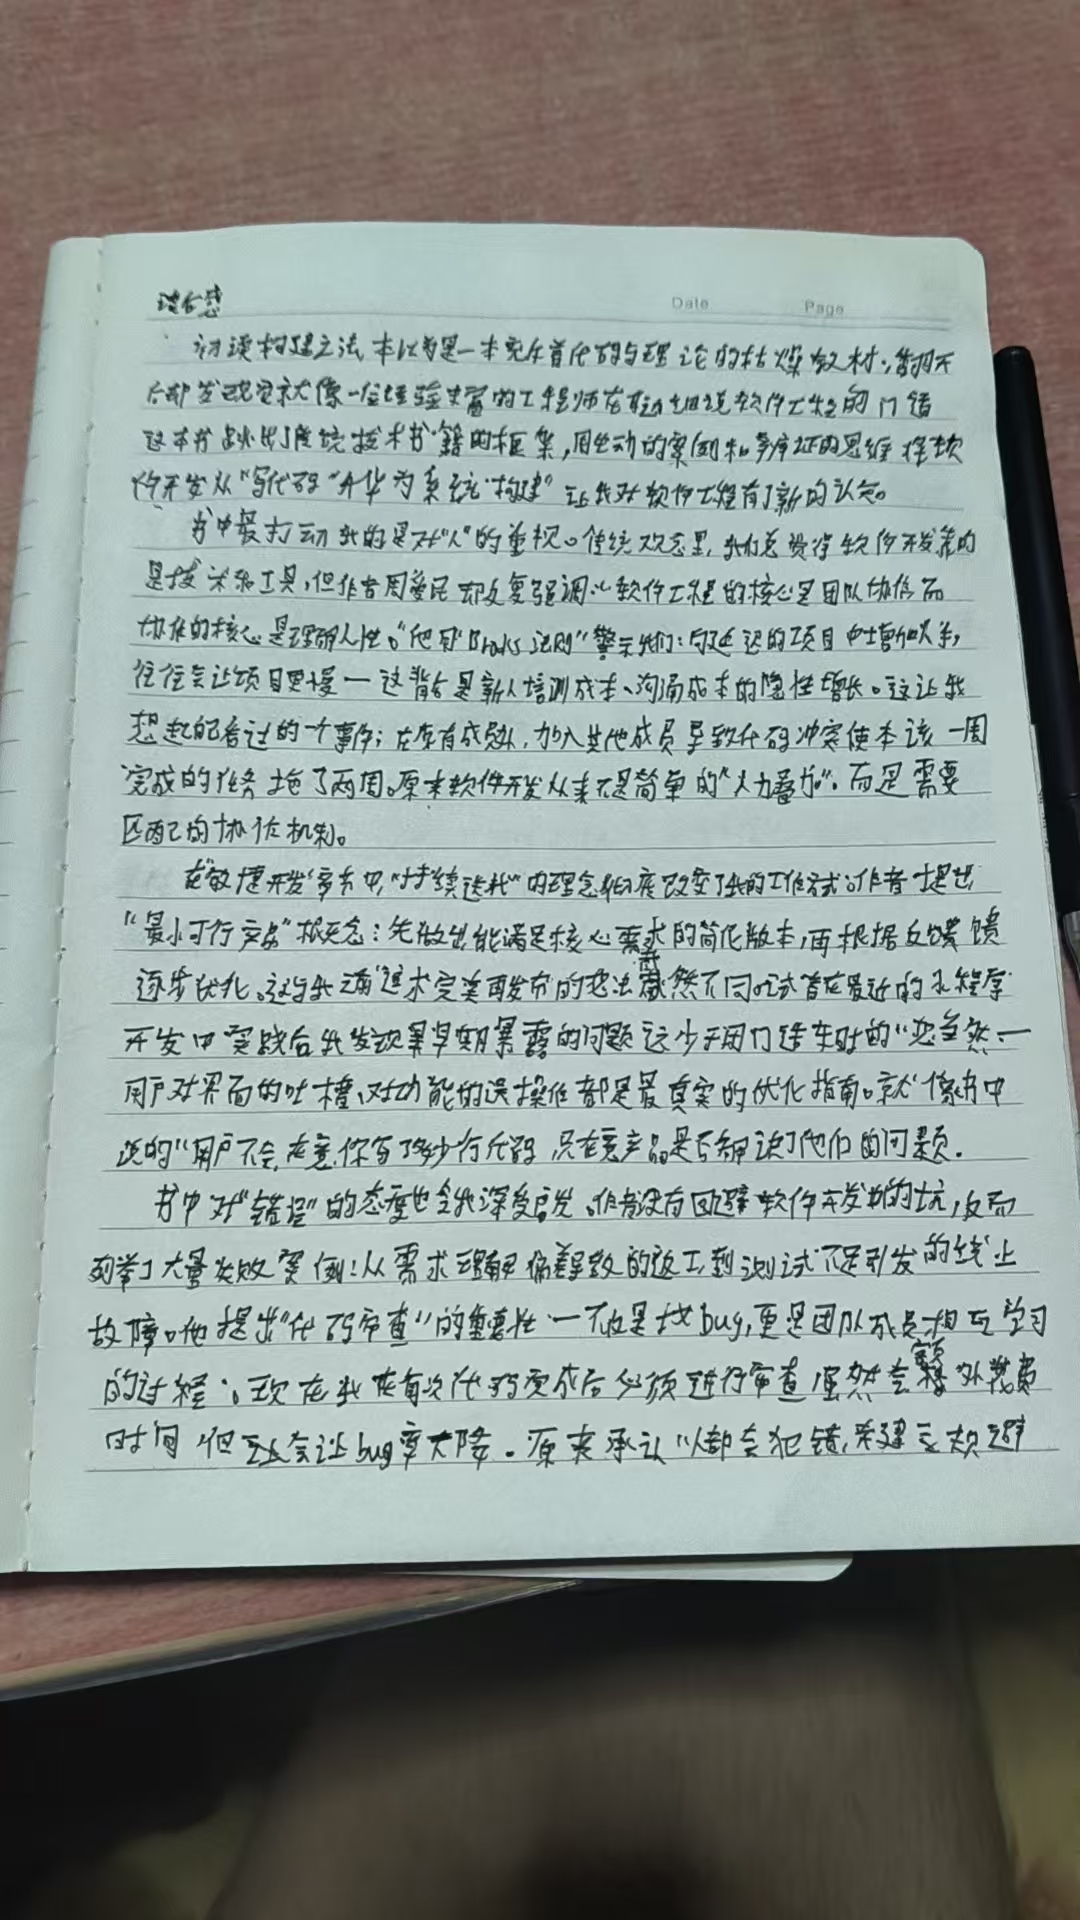 读后感
Date Page
初读构建之法,本以为是一本充斥着代码与理论的枯燥教材,翻开
后却发现它就像一位经验丰富的工程师在 软件工程的门
这本书跳出了传统技术书籍的框架,用生动的案例和辩证的思维将软
件开发从"写代码"升华为系统"构建"让我对软件工程有了新的认知。
书中最打动我的是对"人"的重视。传统观念里,我们总觉得软件开发靠的
是技术和工具,但作者周爱民却反复强调"软件工程的核心是团队协作而
协作的核心是理解人性。"他用"Brooks法则"警示我们:向延迟的项目中增加人手,
往往会让项目更慢—这背后是新人培训成本、沟通成本的隐性增长。这让我
想起 看过的一个事件;在原有成员 ,加入其他成员导致代码冲突使本该一周
完成的任务拖了两周。原来软件开发从来不是简单的"人力叠加",而是需要
匹配的协作机制。
在敏捷开发章节中,"持续迭代"的理念彻底改变了我的工作方式。作者提出
"最小可行产品"概念:先做出能满足核心需求的简化版本,再根据反馈 馈
逐步优化。这与我之前追求完美再发布的想法截然不同。试着在最近的小程序
开发中实践后我发现早期暴露的问题远少于闭门造车时的"想当然—
用户对界面的吐槽、对功能的误操作都是最真实的优化指南。就像书中
说的"用户不会在意你写了多少行代码,只在意产品是否解决了他们的问题.
书中对"错误"的态度也令我深受启发。作者没有回避软件开发中的坑,反而
列举了大量失败案例:从需求理解偏差导致的返工,到测试不足引发的线上
故障。他提出"代码审查"的重要性—不仅是找bug,更是团队成员相互学习
的过程。现在我在每次代码完成后必须进行审查虽然会额外花费
时间,但 会让bug率大降。原来承认"人都会犯错,并建立规避